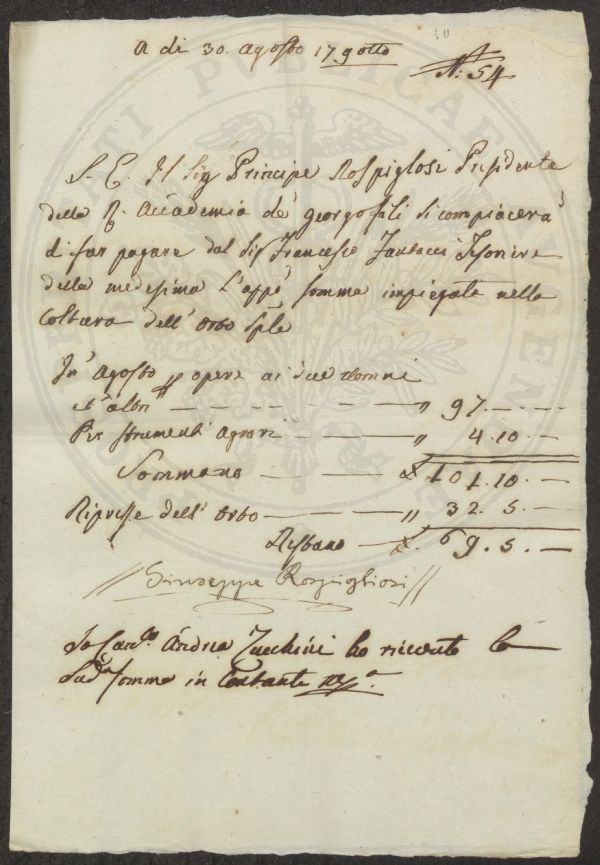 A di 30. Agosto 17 9otto
N.° 54
S. E. Il Sig Principe Rospigliosi Presidente
della R. Accademia de' Georgofili si compiacerà
di far pagare dal Sig Francesco Tesoriere
della medesima L'appe Somma impiegata nella
Coltura dell' Orto Sple
In Agosto pp opere ai due Uomini
et altri — — — — — „ 97. — . —
Per Strumenti Agrari — — „ 4.10. —
Sommano — — — £ 101.10. —
Riprese dell' Orto — — „ 32. 5. —
Restano — £. 69. 5. —
Giuseppe Rospigliosi
Io Can.co Andrea Zucchini ho ricevuto la
Sud.a Somma in Contante